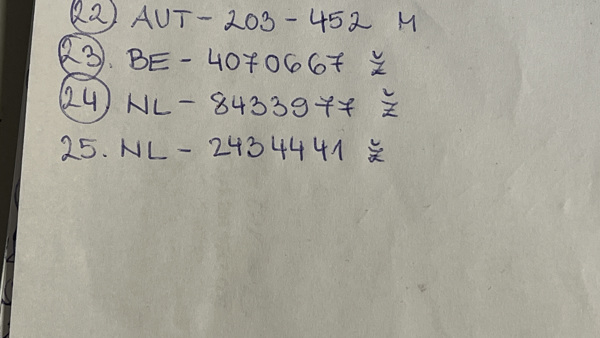 22. AUT - 203 - 452 M
23. BE - 4070667 Ž
24. NL - 8433977 Ž
25. NL - 2434441 Ž